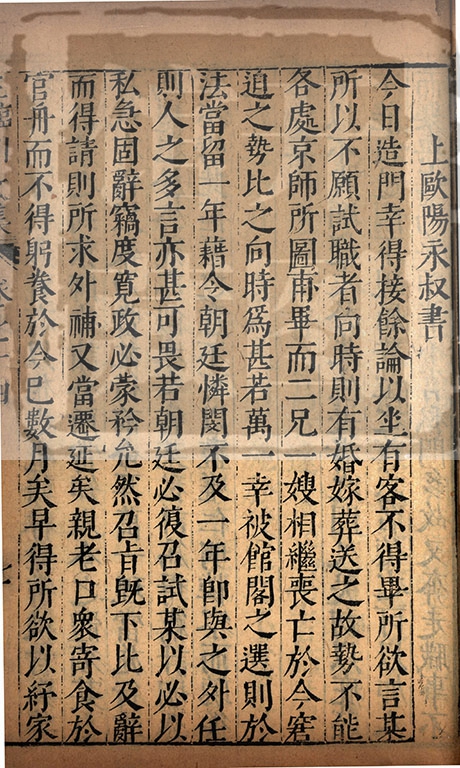 上歐陽永叔書
今日造門幸得接餘論以坐有客不得畢所欲言某
所以不願試職者向時則有婚嫁葬送之故勢不能
各處京師所圖甫畢而二兄一嫂相繼喪亡於今窘
迫之勢比之向時爲甚若萬一幸被館閣之選則於
法當留一年藉令朝廷憐閔不及一年卽與之外任
則人之多言亦甚可畏若朝廷必復召試某以必以
私急固辭竊度寬政必蒙矜允然召旨旣下比及辭
而得請則所求外補又當遷延矣親老口衆寄食於
官舟而不得躬養於今巳數月矣早得所欲以紓家